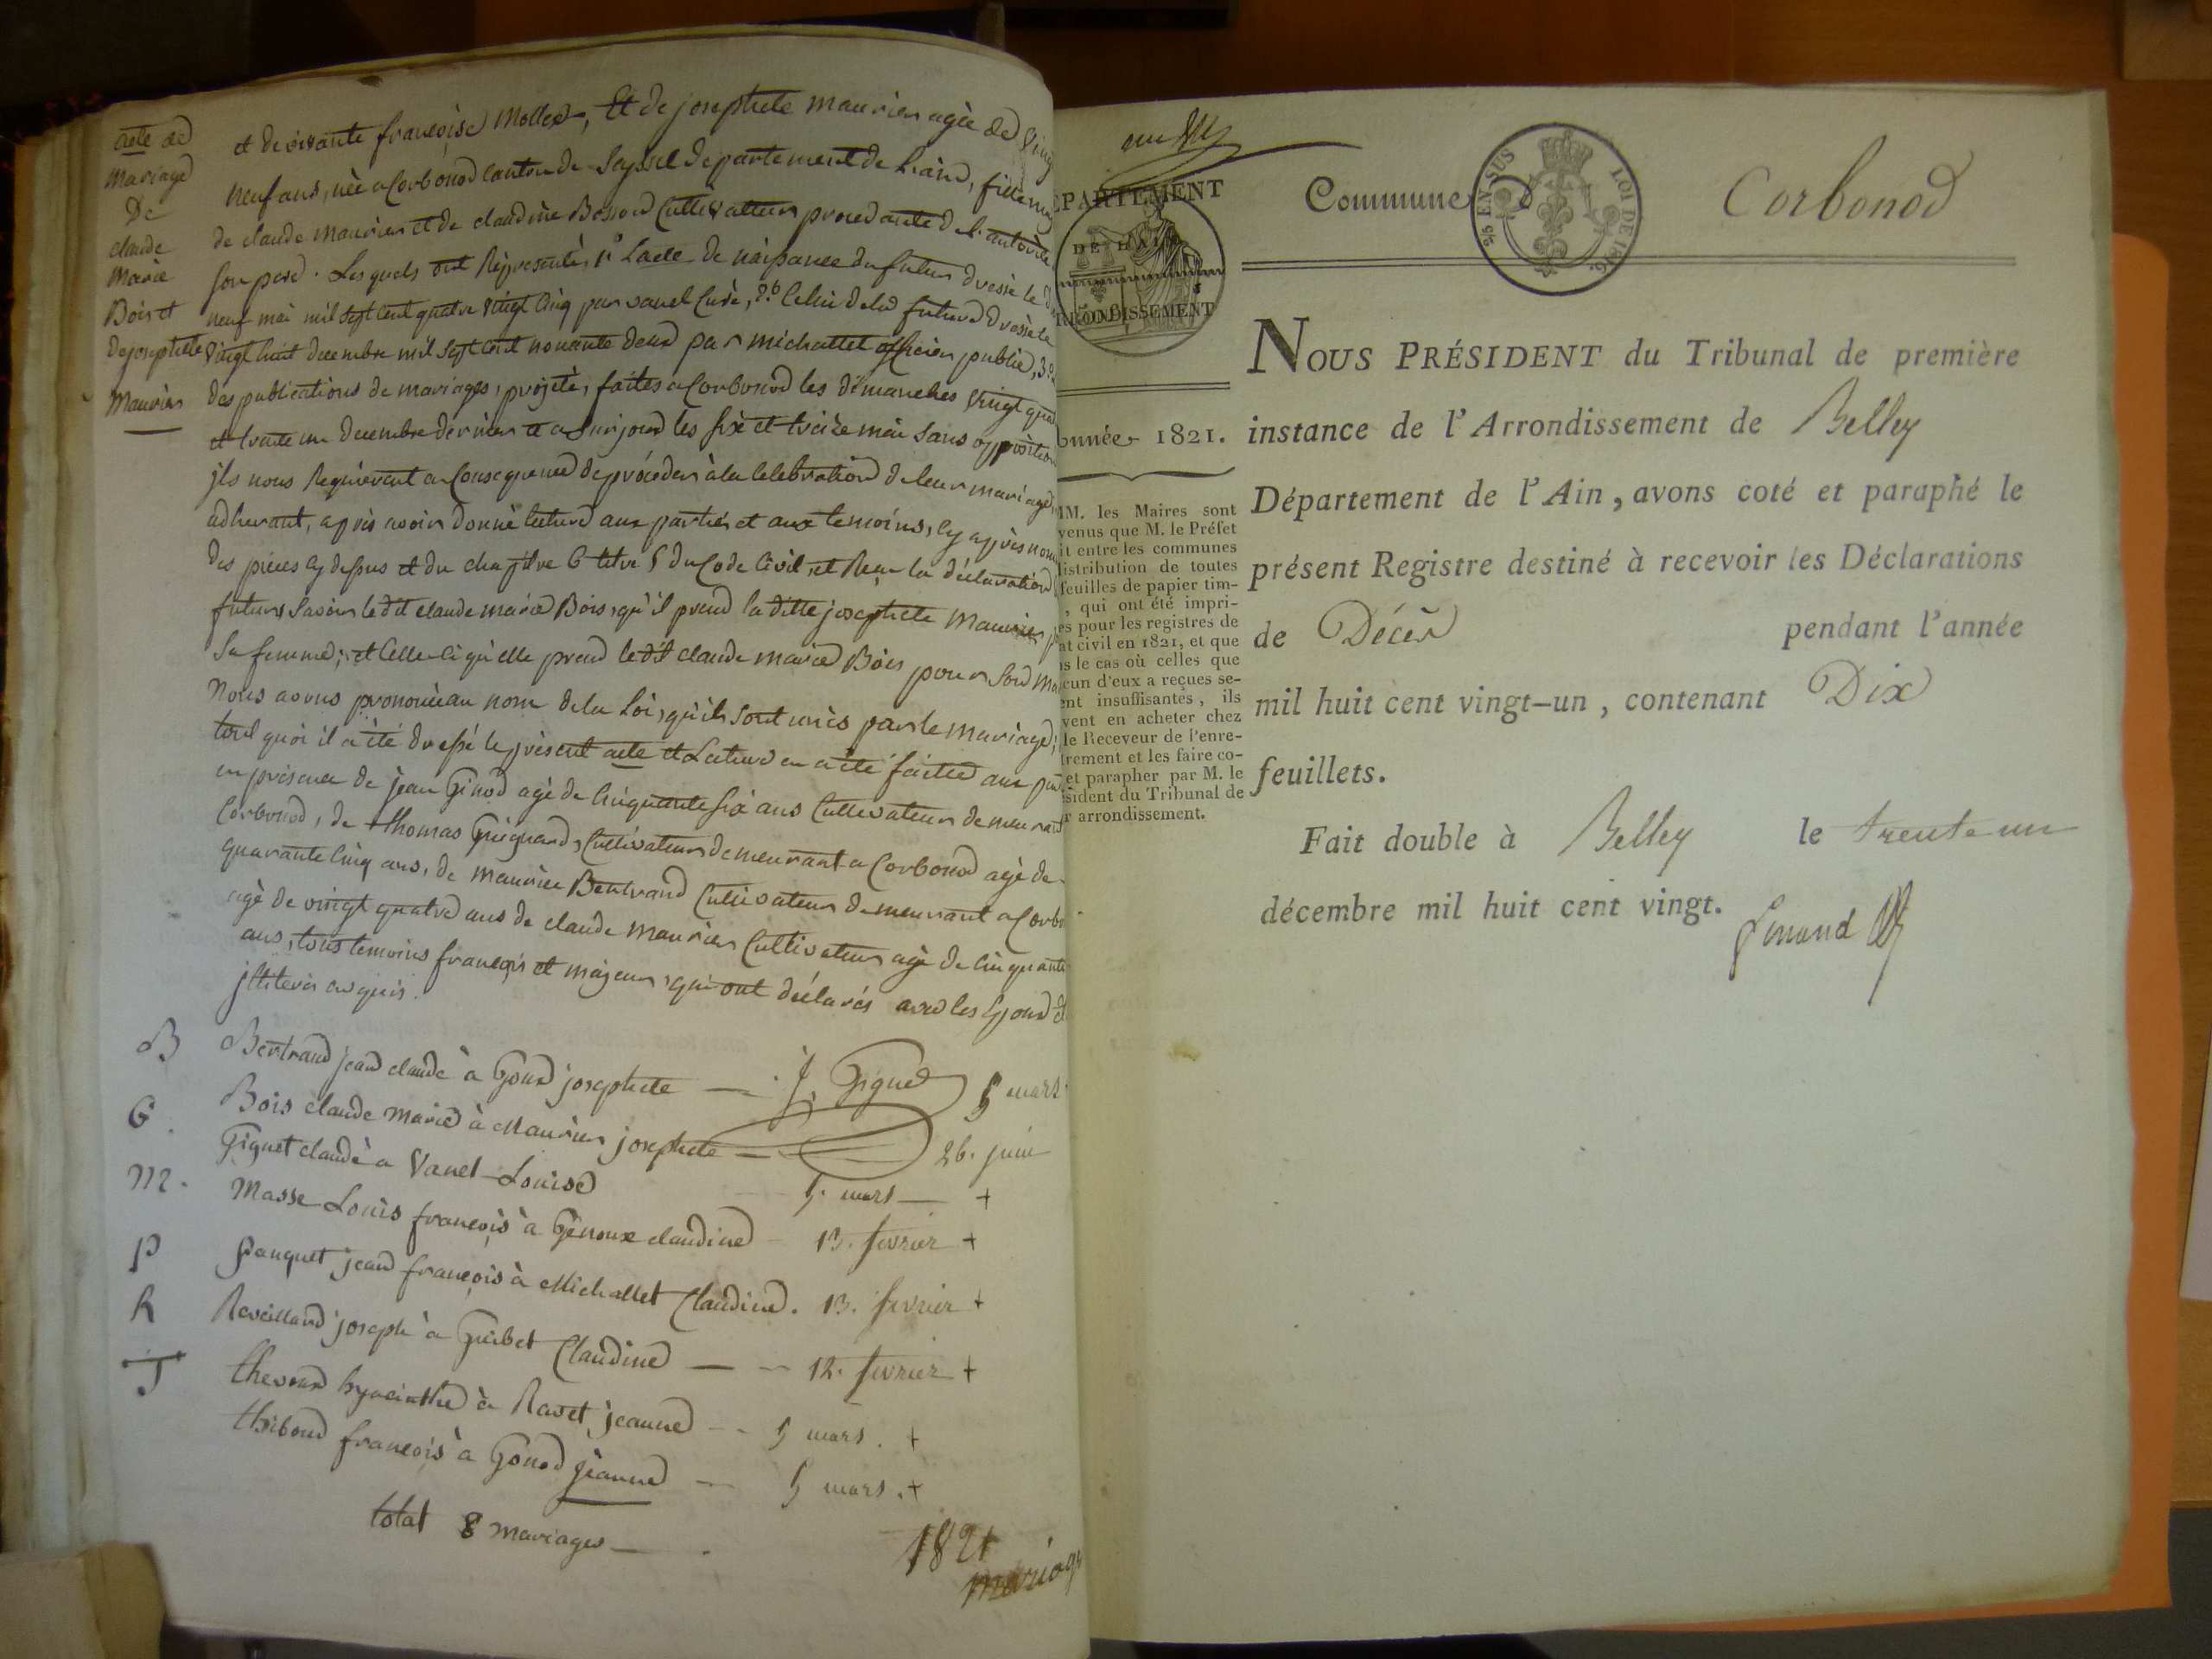 acte de
mariage
De
claude
Marie
Bois et
de josephete
Maurier
et de vivante françoise Mollex, Et de josephete maurier agée de Vingt
neuf ans, née a Corbonod canton de Seyssel departement de L'ain, fille
de claude maurier et de claudine Bosson Cultivateurs procedante de l'autorité
son pere. Lesquels ont Réprésentés, 1° L'acte de naissance du futur dressé le
neuf mai mil sept cent quatre vingt cinq par vanel Curé, 2° Celui de la future dressé le
vingt huit decembre mil sept cent nonante deux par michallet officier public, 3°
des publications de mariages, projeté, faites a Corbonod les dimanches vingt quatre
et trente un decembre dernier et a Surjoux les six et treize mai sans opposition
jls nous Requierent en Consequence de procéder à la Celebration de leur mariage,
adherant, après avoir donné lecture aux parties et aux temoins, cy après nom
des pièces cy dessus et du chapitre 6 titre 5 du Code Civil, et Reçu la déclaration
futurs Savoir le dit claude marie Bois, qu'il prend la ditte josephete Maurier
Sa femme; et Celle-Ci qu'elle prend le dit claude marie Bois pour Son Mari
Nous avons prononcé au nom de la Loi, qu'ils sont unis par le mariage;
tout quoi il a été dressé le présent acte et Lecture en a été faitte aux
en présence de jean Ginod agé de Cinquante six ans Cultivateur demeurant
Corbonod, de thomas Guignard, Cultivateur demeurant a Corbonod agé de
quarante Cinq ans, de maurice Bertrand Cultivateur demeurant a Corbo
agé de vingt quatre ans de claude maurier Cultivateur agé de Cinquante
ans, tous temoins françois et majeurs, qui ont déclarés avec les
jllitérés enquis.
B Bertrand jean claude à Goux josephete — J. Giguet 5 mars
Bois claude marie à Maurier josephete — 26. juin
G. Giguet claude à Vanel Louise 5. mars — +
M. Masse Louis françois à Génoux claudine 13. fevrier +
P Pauquet jean françois à Michallet Claudine. 13. fevrier +
R Reveillard joseph à Guibet Claudine — 12. fevrier +
T thevenard hyacinthe à Ravet jeanne — 5 mars. +
thiboud françois à Gonod jeanne — 5 mars. +
total 8 mariages —
1821
mariages
EPARTEMENT
DE L'AIN
RRONDISSEMENT
Année 1821.
MM. les Maires sont
venus que M. le Préfet
it entre les communes
distribution de toutes
feuilles de papier tim-
, qui ont été impri-
es pour les registres de
at civil en 1821, et que
ns le cas où celles que
cun d'eux a reçues se-
ent insuffisantes, ils
vent en acheter chez
le Receveur de l'enre-
trement et les faire co-
et parapher par M. le
ésident du Tribunal de
r arrondissement.
Commune d Corbonod
5/6 EN SUS LOI DE 1816.
NOUS PRÉSIDENT du Tribunal de première
instance de l'Arrondissement de Belley
Département de l'Ain, avons coté et paraphé le
présent Registre destiné à recevoir les Déclarations
de Décès pendant l'année
mil huit cent vingt-un, contenant Dix
feuillets.
Fait double à Belley le trente un
décembre mil huit cent vingt.